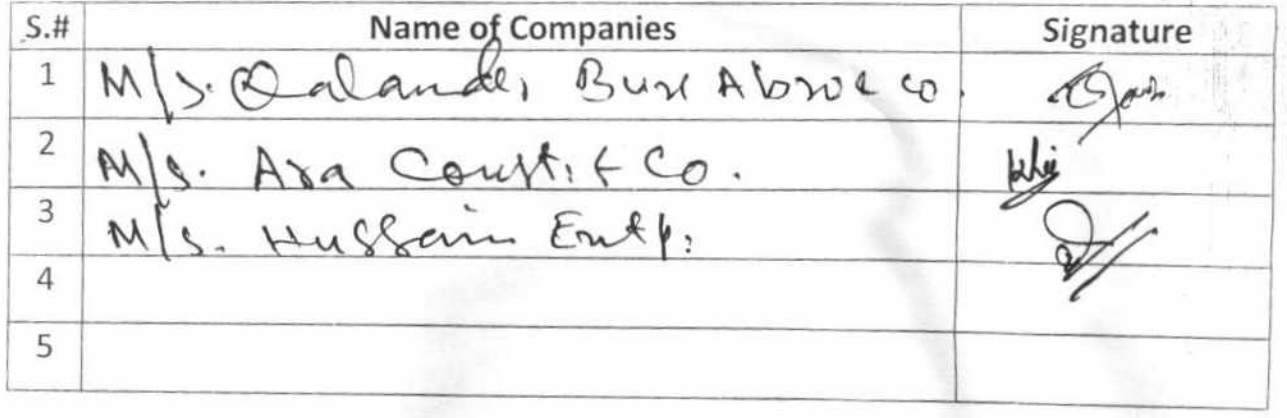 S.# Name of Companies Signature
1 M/s. Qalander Bux Abro & co.
2 M/s. Ara Const: & Co.
3 M/s. Hussain Entp:
4
5